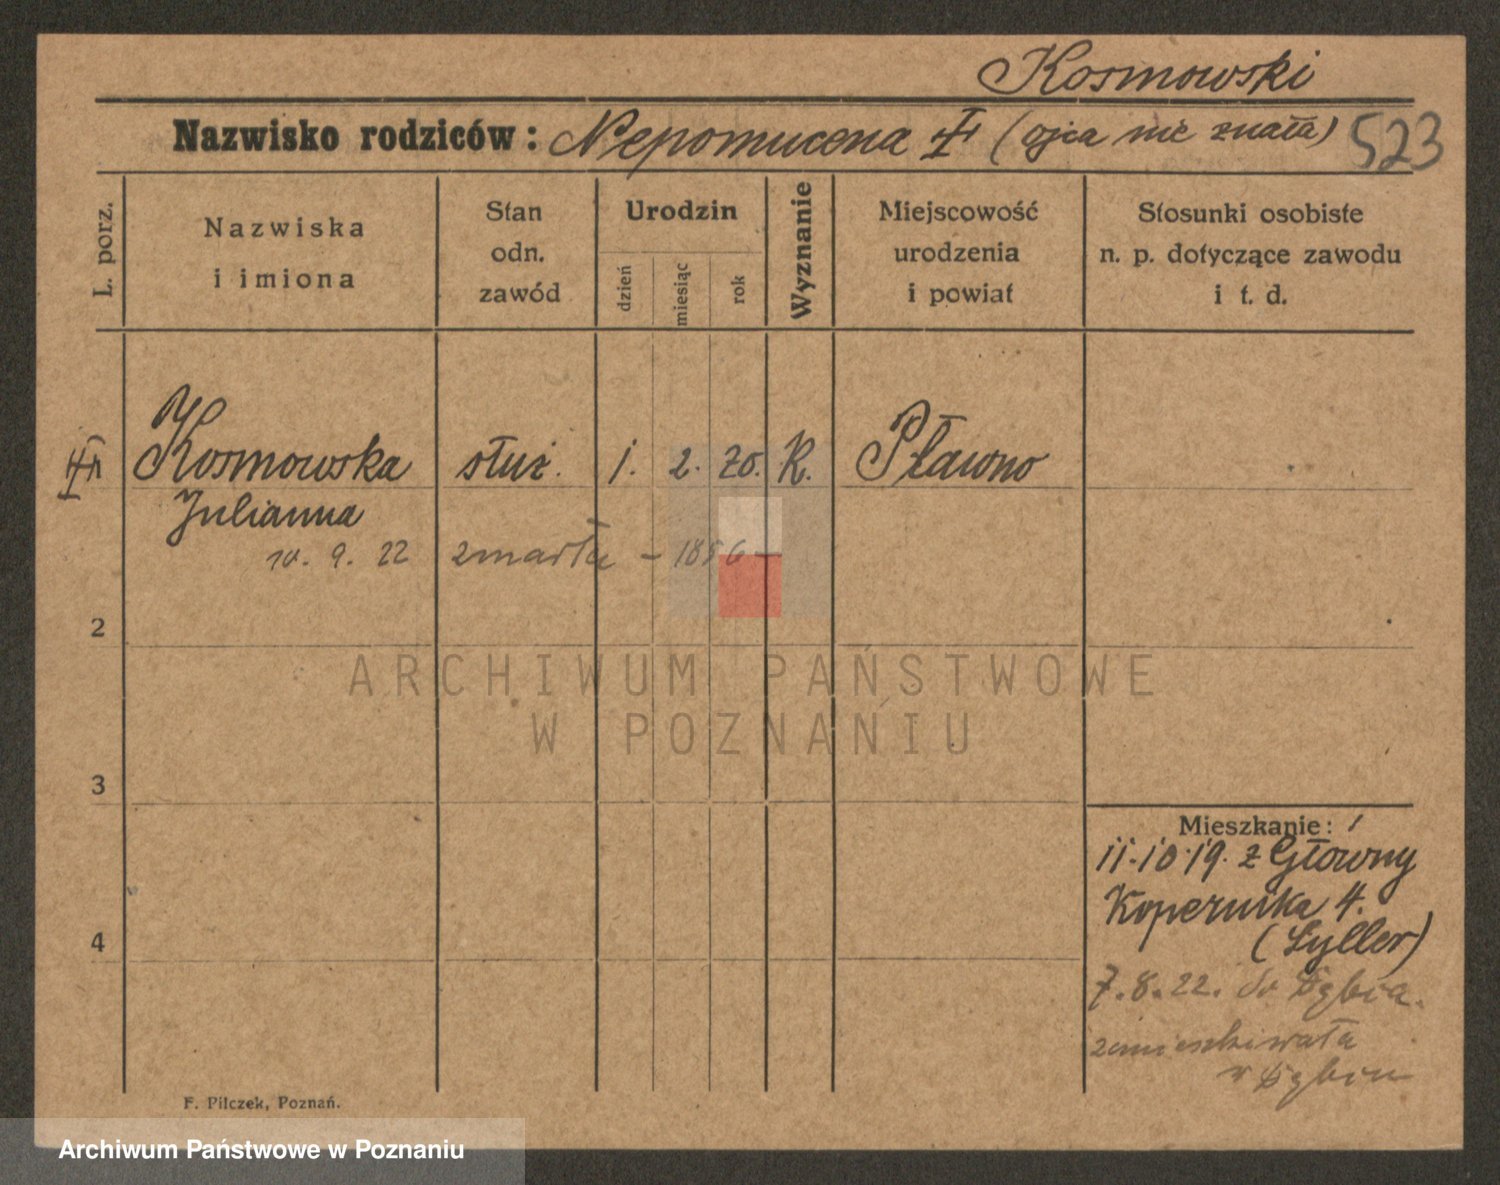 Kosmowski
Nazwisko rodziców: Nepomucena (ojca nie znała) 523
L. porz.
Nazwiska
i imiona
Stan
odn.
zawód
Urodzin
dzień
miesiąc
rok
Wyznanie
Miejscowość
urodzenia
i powiat
Stosunki osobiste
n. p. dotyczące zawodu
i t. d.
Kosmowska służ. 1. 2. 70. K. Pławno
Julianna
10. 9. 22 zmarła - 1856 -
2
ARCHIWUM PAŃSTWOWE
W POZNANIU
3
Mieszkanie:
11.10.19. z Główny
Kopernika 4.
(Syller)
4
7.8.22. do Dębca.
zamieszkiwała
w Dębcu
F. Pilczek, Poznań.
Archiwum Państwowe w Poznaniu